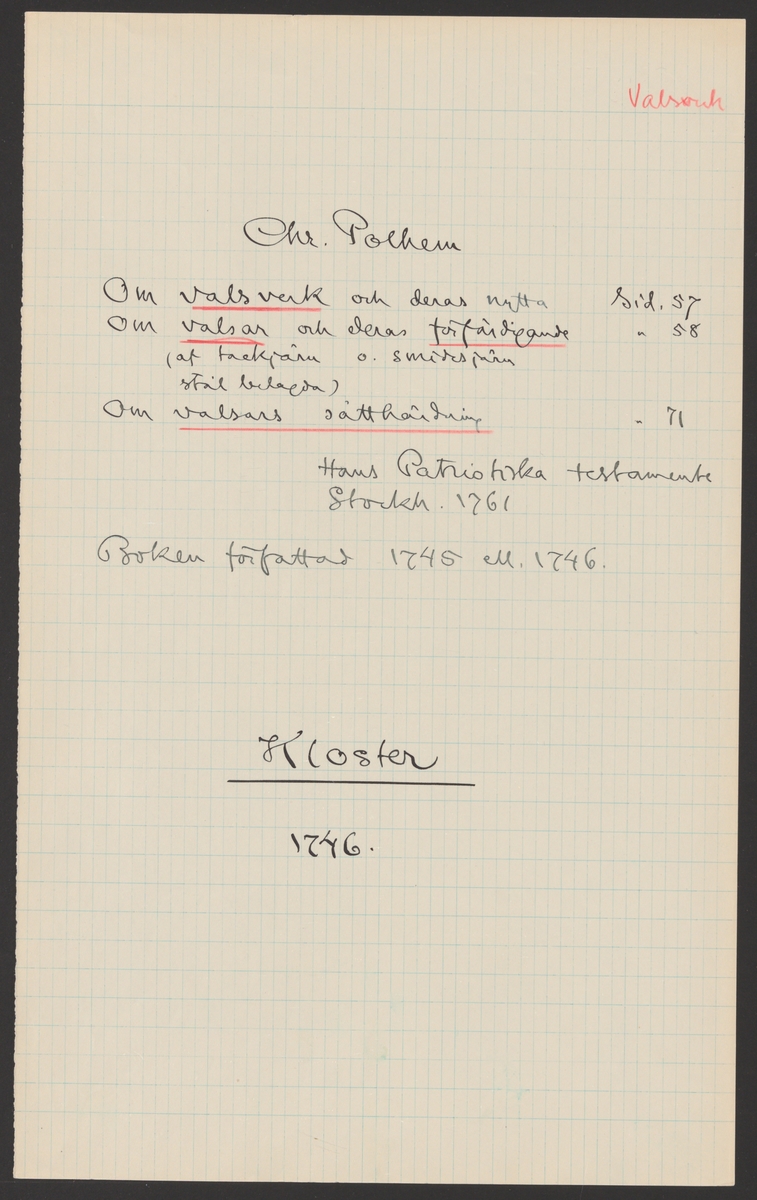 Valsverk
Chr. Polhem
Om valsverk och deras nytta Sid. 57
Om valsar och deras förfärdigande " 58
(af tackjärn o. smidesjärn
stål belagda)
Om valsars sätthärdning " 71
Hans Patriotiska testamente
Stockh. 1761
Boken författad 1745 ell. 1746.
Kloster
1746.